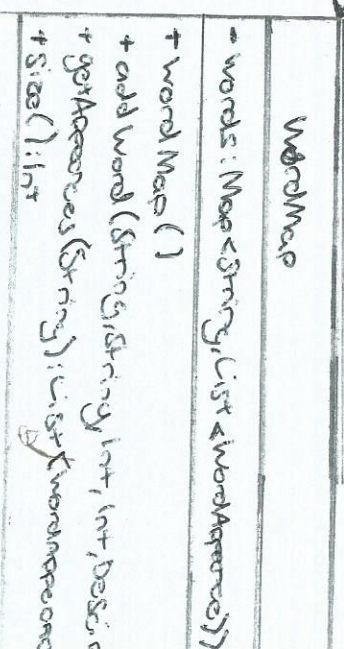 WordMap
- words: Map<String, List<WordAppearance>>
+ WordMap()
+ addWord(String, String, Int, Int, Desc.
+ getAppearances(String): List<
+ Size(): Int